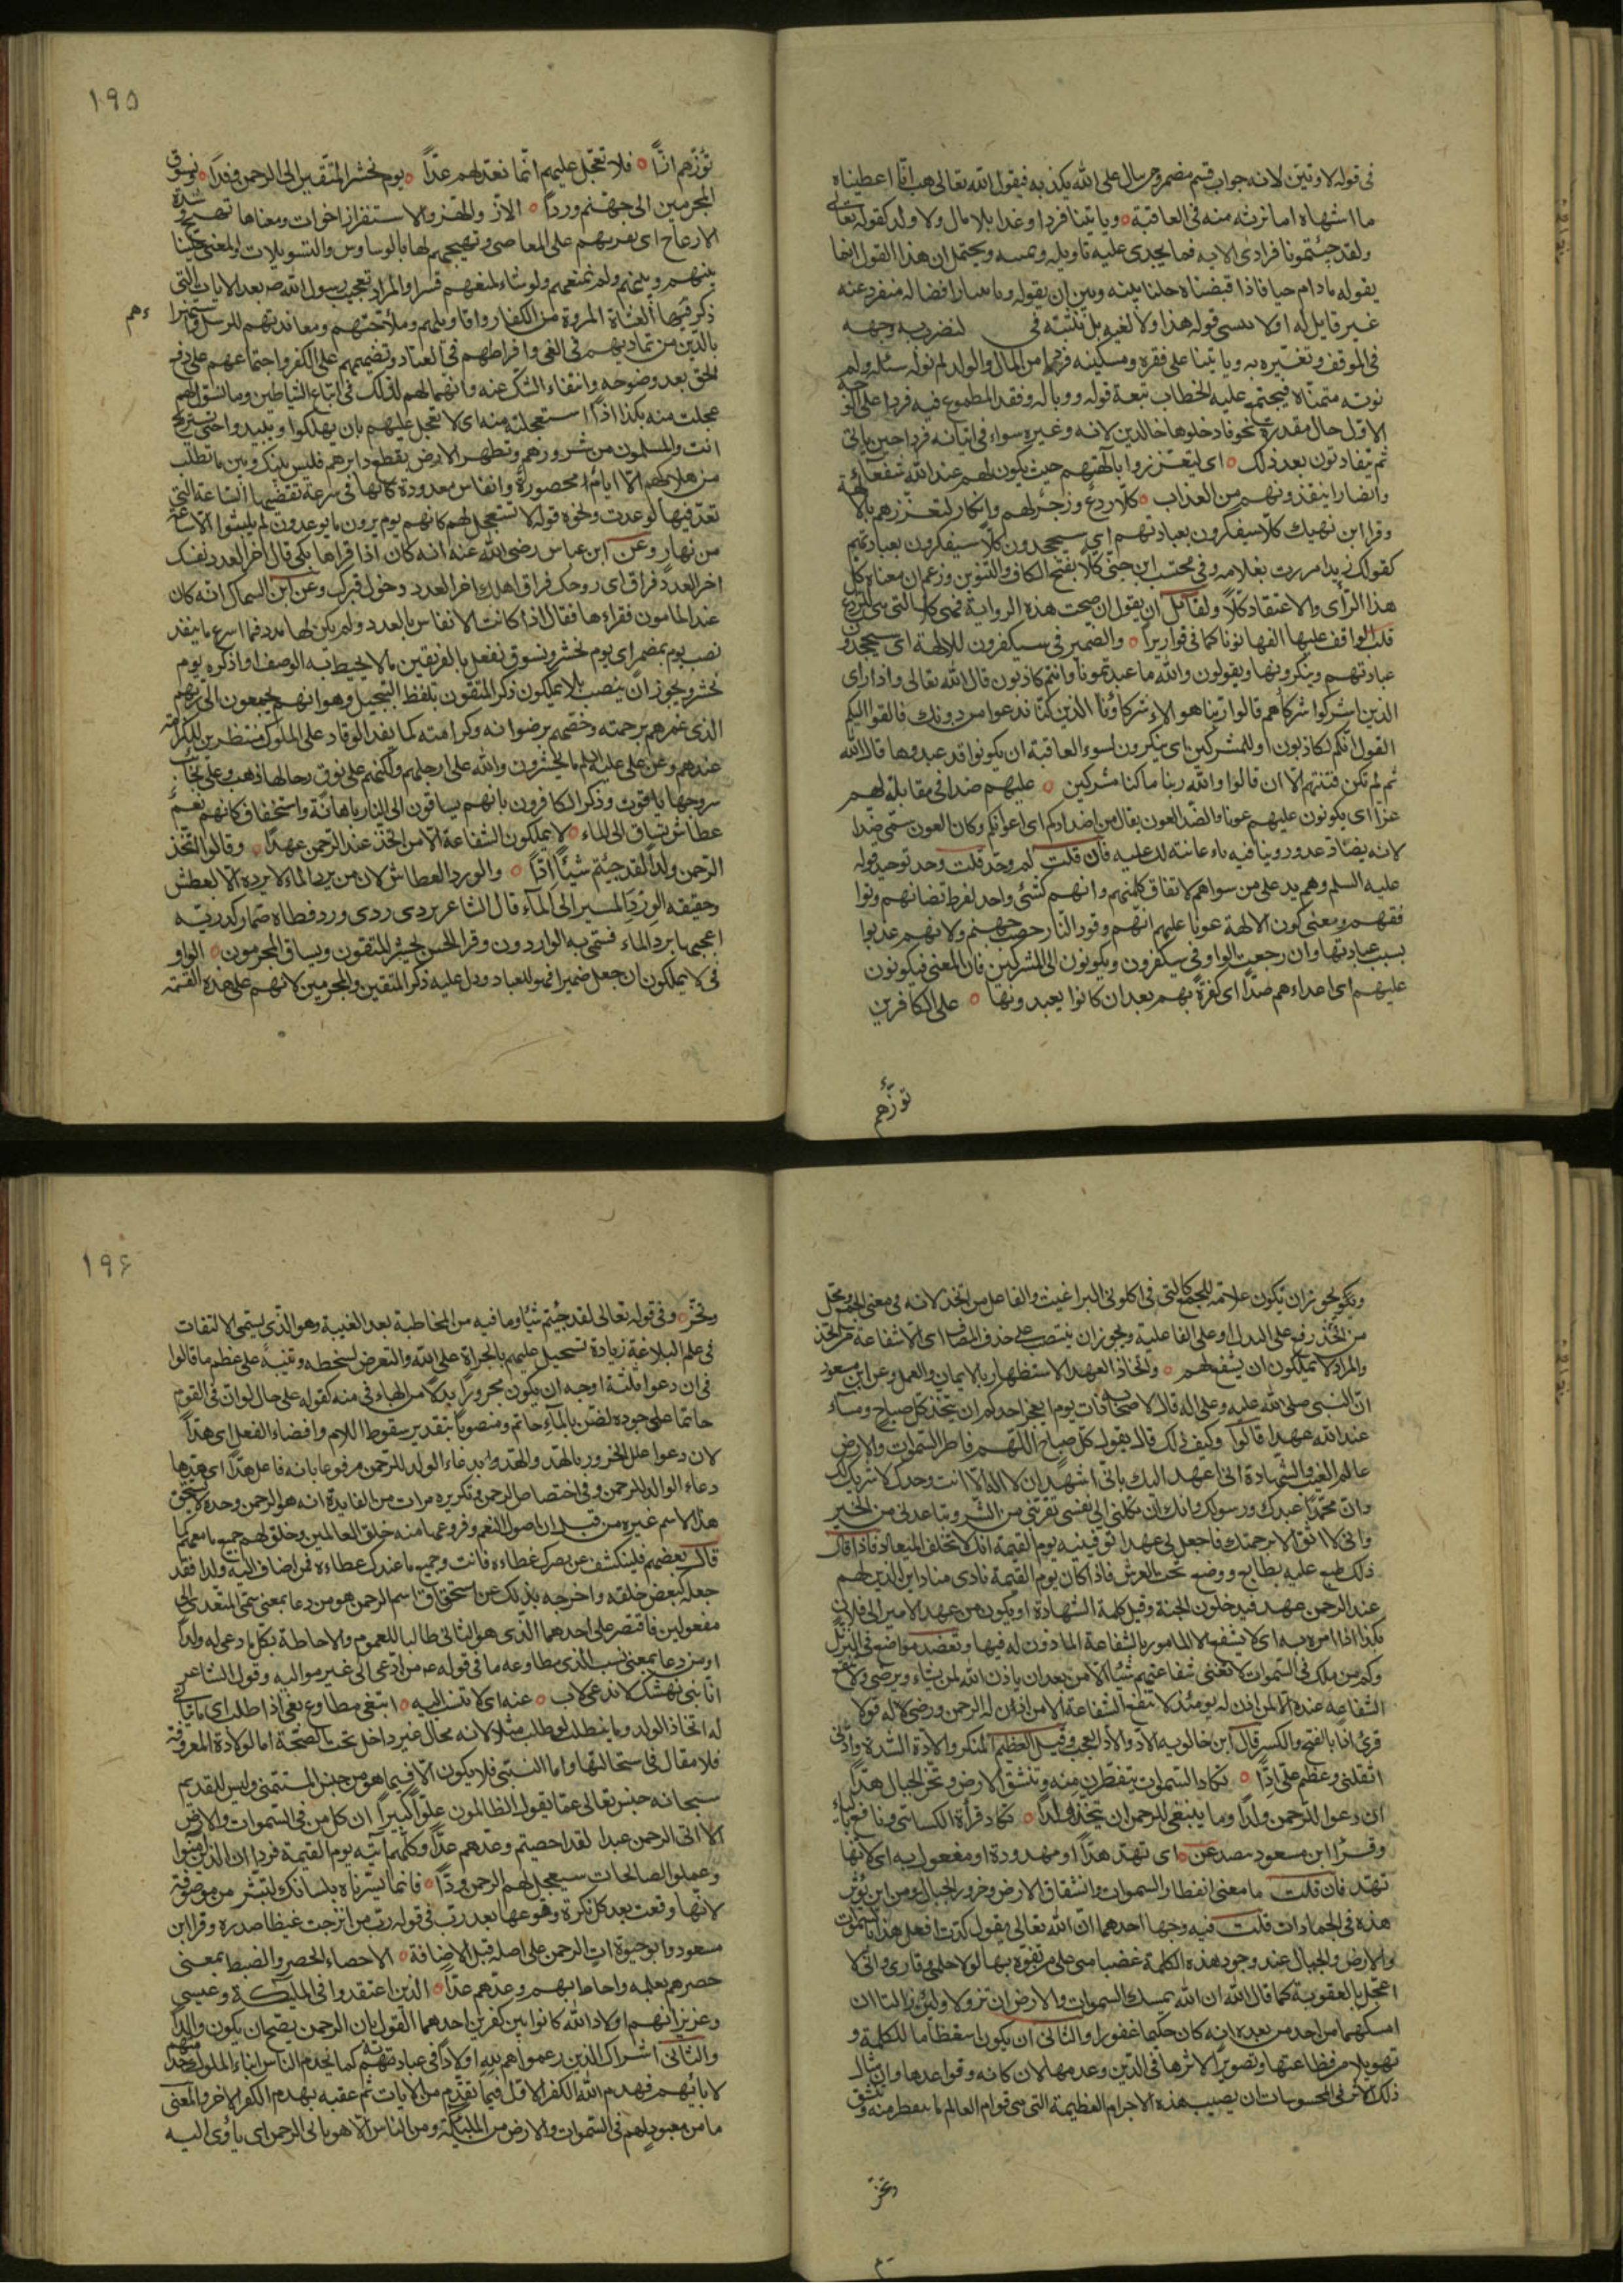 فى قوله لاوتين لانه جواب قسم مضمر ومن سال على الله يكذبه فيقول الله تعالى هب انا اعطيناه
ما اشتهاه اما نرثه منه فى العاقبة ويأتينا فردا غدا بلا مال ولا ولد كقوله تعالى
ولقد جئتمونا فرادى الايه فما يجدى عليه تاويله وتمنيه ويحتمل ان هذا القول انما
يقوله مادام حيا فاذا قبضناه حلنا بينه وبين ان يقوله ويأتينا رافضا له منفردا عنه
غير قايل له اولا ننسى قوله هذا ولا نلغيه بل نثبته فى لنضرب به وجهه
فى الموقف ونعيره به ويأتينا على فقره ومسكنته فردا من المال والولد لم نوله سئله ولم
نوته متمناه فيجتمع عليه الخطاب تبعة قوله ووباله وفقد المطموع فيه فردا على الوجه
الاول حال مقدرة نحو فادخلوها خالدين لانه وغيره سواء فى اتيانه فردا حين يأتى
ثم يتفاوتون بعد ذلك اى ليتعززوا بالهتهم حيث يكون لهم عند الله شفعاء
وانصارا ينقذونهم من العذاب كلا ردع وزجر لهم وانكار لتعززهم بالالهة
وقرا ابن نهيك كلا سيفكرون بعبادتهم اى سيجحدون كلا سيكفرون بعبادتهم
كقولك زيدا مررت بغلامه وفى محتسب ابن جنى كلا بفتح الكاف والتنوين وزعم ان معناه كل
هذا الراى والاعتقاد كلا ولقائل ان يقول ان صحت هذه الرواية فهى كلا التى هى للردع
قلب الواقف عليها الفها نونا كما فى قواريرا والضمير فى سيكفرون للالهة اى سيجحدون
عبادتهم وينكرونها ويقولون والله ما عبدتمونا وانتم كاذبون قال الله تعالى واذا راى
الذين اشركوا شركاءهم قالوا ربنا هولاء شركاؤنا الذين كنا ندعوا من دونك فالقوا اليهم
القول انكم لكاذبون او للمشركين اى ينكرون لسوء العاقبة ان يكونوا قد عبدوها قال الله
ثم لم تكن فتنتهم الا ان قالوا والله ربنا ما كنا مشركين عليهم ضدا فى مقابلة لهم
عزا اى يكونون عليهم عونا والضد العون يقال من اضدادكم اى اعوانكم وكان العون سمى ضدا
لانه يضاد عدوك وينافيه باعانته لك عليه فان قلت لم وحد قلت وحد توحيد قوله
عليه السلم وهم يد على من سواهم لاتفاق كلمتهم وانهم كشئ واحد لفرط تضامهم وتوا
فقهم ومعنى كون الالهة عونا عليهم انهم وقود النار حصب جهنم ولانهم عذبوا
بسبب عبادتها وان رجعت الواو فى سيكفرون ويكونون الى المشركين فان المعنى فيكونون
عليهم اى اعداءهم ضدا اى كفرة بهم بعد ان كانوا يعبدونها على الكافرين
تؤزهم
١٩٥
تؤزهم ازا فلا تعجل عليهم انما نعد لهم عدا يوم نحشر المتقين الى الرحمن وفدا ونسوق
المجرمين الى جهنم وردا الاز والهز والاستفزاز اخوات ومعناها التهييج وشدة
الازعاج اى تغريهم على المعاصى وتهيجهم لها بالوساوس والتسويلات والمعنى خلينا
بينهم وبينهم ولم نمنعهم ولو شاء لمنعهم قسرا والمراد تعجيب رسول الله صه بعد الايات التى
ذكر فيها العتاة المردة من الكفار واقاويلهم وملاحتهم ومعاندتهم للرسل واستهزاءهم
بالدين من تماديهم فى الغى وافراطهم فى العناد وتصميمهم على الكفر واجتماعهم على دفع
الحق بعد وضوحه وانتفاء الشك عنه وانهماكهم لذلك فى اتباع الشياطين وما تسول لهم
عجلت منه بكذا اذا استعجلته منه اى لا تعجل عليهم بان يهلكوا ويبيدوا حتى تستريح
انت والمسلمون من شرورهم وتطهر الارض بقطع دابرهم فليس بينك وبين ما تطلب
من هلاكهم الا ايام محصورة وانفاس معدودة كانها فى سرعة تقضيها الساعة التى
تعد فيها لو عدت ونحوه قوله لا تستعجل لهم كانهم يوم يرون ما يوعدون لم يلبثوا الا ساعة
من نهار وعن ابن عباس رضى الله عنه انه كان اذا قراها بكى وقال اخر العدد خروج نفسك
اخر العدد فراق اهلك اخر العدد دخول قبرك وعن ابن السماك انه كان
عند المامون فقراها فقال اذا كانت الانفاس بالعدد ولم يكن لها مدد فما اسرع ما ينفد
نصب يوم بمضمر اى يوم نحشر ونسوق نفعل بالفريقين ما لا يحيط به الوصف او اذكر يوم
نحشر ويجوز ان ينصب بلا يملكون ذكر المتقون بلفظ التبجيل وهو انهم يجمعون الى ربهم
الذى غمرهم برحمته وخصهم برضوانه وكرامته كما يفد الوفاد على الملوك منتظرين للكرامة
عندهم وعن على عليه السلم ما يحشرون والله على ارجلهم ولكنهم على نوق رحالها ذهب وعلى نجائب
سروجها ياقوت وذكر الكافرون بانهم يساقون الى النار باهانة واستخفاف كانهم نعم
عطاش تساق الى الماء لا يملكون الشفاعة الا من اتخذ عند الرحمن عهدا وقالوا اتخذ
الرحمن ولدا لقد جئتم شيئا ادا والورد العطاش لان من يرد الماء لا يرده الا لعطش
وحقيقة الورد المسير الى الماء قال الشاعر ردى ردى ورد قطاة صما كدرية
اعجبها برد الماء فسمى به الواردون وقرا الحسن يحشر المتقون ويساق المجرمون الواو
فى لا يملكون ان جعل ضميرا فهو للعباد ودل عليه ذكر المتقين والمجرمين لانهم على هذه القسمة
ويجوز ان تكون علامة للجمع كالتى فى اكلونى البراغيث والفاعل من اتخذ لانه فى معنى الجمع ومحل
من اتخذ رفع على البدل او على الفاعلية ويجوز ان ينتصب على حذف المضاف اى الا شفاعة من اتخذ
والمراد لا يملكون ان يشفع لهم واتخاذ العهد الاستظهار بالايمان والعمل وعن ابن مسعود
ان النبى صلى الله عليه وعلى اله قال لاصحابه ذات يوم ايعجز احدكم ان يتخذ كل صباح ومساء
عند الله عهدا قالوا وكيف ذلك قال يقول كل صباح اللهم فاطر السموات والارض
عالم الغيب والشهادة انى اعهد اليك بانى اشهد ان لا اله الا انت وحدك لا شريك لك
وان محمدا عبدك ورسولك وانك ان تكلنى الى نفسى تقربنى من الشر وتباعدنى من الخير
وانى لا اثق الا برحمتك فاجعل لى عهدا توفينيه يوم القيمة انك لا تخلف الميعاد فاذا قال
ذلك طبع عليه بطابع ووضع تحت العرش فاذا كان يوم القيمة نادى مناد اين الذين لهم
عند الرحمن عهد فيدخلون الجنة وقيل كلمة الشهادة او يكون من عهد الامير الى فلان
بكذا اذا امره به اى لا يشفع الا المامور بالشفاعة الماذون له فيها وتعضده مواضع فى التنزيل
وكم من ملك فى السموات لا تغنى شفاعتهم شيئا الا من بعد ان ياذن الله لمن يشاء ويرضى ولا تنفع
الشفاعة عنده الا لمن اذن له يومئذ لا تنفع الشفاعة الا من اذن له الرحمن ورضى له قولا
قرئ ادا بالفتح والكسر قال ابن خالويه الاد والاد العجب وقيل العظيم المنكر والادة الشدة وادنى
اثقلنى وعظم على ادا تكاد السموات يتفطرن منه وتنشق الارض وتخر الجبال هدا
ان دعوا للرحمن ولدا وما ينبغى للرحمن ان يتخذ ولدا تكاد قراة الكسائى ونافع بالياء
وقرا ابن مسعود ينصدعن اى تهد هدا او مهدودة او مفعول به اى لانها
تهد فان قلت ما معنى انفطار السموات وانشقاق الارض وخرور الجبال ومن اين تؤثر
هذه فى الجمادات قلت فيه وجهان احدهما ان الله تعالى يقول كدت افعل هذا بالسموات
والارض والجبال عند وجود هذه الكلمة غضبا منى على من تفوه بها لولا حلمى ووقارى وانى لا
اعجل بالعقوبة كما قال الله ان الله يمسك السموات والارض ان تزولا ولئن زالتا ان
امسكهما من احد من بعده انه كان حليما غفورا والثانى ان يكون استعظاما للكلمة و
تهويلا من فظاعتها وتصويرا لاثرها فى الدين وهدمها لاركانه وقواعده وان مثال
ذلك الاثر فى المحسوسات ان يصيب هذه الاجرام العظيمة التى هى قوام العالم ما تنفطر منه وتنشق
وتخر
١٩۶
وتخر وفى قوله تعالى لقد جئتم شيئا وما فيه من المخاطبة بعد الغيبة وهو الذى يسمى الالتفات
فى علم البلاغة زيادة تسجيل عليهم بالجراة على الله والتعرض لسخطه وتنبيه على عظم ما قالوا
فى ان دعوا ثلثة اوجه ان يكون مجرورا بدلا من الهاء فى منه كقوله على حالة لو ان فى القوم
حاتما على جوده لضن بالماء حاتم ومنصوبا بتقدير سقوط اللام وافضاء الفعل اى هدا
لان دعوا علل الخرور بالهد والهد بدعاء الولد للرحمن مرفوعا بانه فاعل هدا اى هدها
دعاء الولد للرحمن وفى اختصاص الرحمن وتكريره مرات من الفايدة انه هو الرحمن وحده لا يستحق
هذا الاسم غيره من قبل ان اصول النعم وفروعها منه خلق العالمين وخلق لهم جميع ما معهم كما
قال بعضهم فلينكشف عن بصرك غطاءه فانت وجميع ما عندك عطاءه فمن اضاف اليه ولدا فقد
جعله كبعض خلقه واخرجه بذلك عن استحقاق اسم الرحمن هو من دعا بمعنى سمى المتعدى الى
مفعولين فاقتصر على احدهما الذى هو الثانى طالبا للعموم والاحاطة بكل ما دعى له ولدا
او من دعا بمعنى نسب الذى مطاوعه ما فى قوله عه من ادعى الى غير مواليه وقول الشاعر
انا بنى نهشل لا ندعى لاب عنه اى لا ننتسب اليه انبغى مطاوع بغى اذا طلب اى ما يتاتى
له اتخاذ الولد وما ينطلب لو طلب مثلا لانه محال غير داخل تحت الصحة اما الولادة المعروفة
فلا مقال فى استحالتها واما التبنى فلا يكون الا فيما هو من جنس المتبنى وليس للقديم
سبحانه جنس تعالى عما يقول الظالمون علوا كبيرا ان كل من فى السموات والارض
الا اتى الرحمن عبدا لقد احصيهم وعدهم عدا وكلهم آتيه يوم القيمة فردا ان الذين آمنوا
وعملوا الصالحات سيجعل لهم الرحمن ودا فانما يسرناه بلسانك لتبشر من موصوفة
لانها وقعت بعد كل نكرة وقوعها بعد رب فى قوله رب من انضجت غيظا صدره وقرا ابن
مسعود وابو حيوة ات الرحمن على اصله قبل الاضافة الاحصاء الحصر والضبط بمعنى
حصرهم بعلمه واحاط بهم وعدهم عدا الذين اعتقدوا فى المليكة وعيسى
وعزير انهم اولاد الله كانوا بين كفرين احدهما القول بان الرحمن يصح ان يكون والدا
والثانى اشراك الذين زعموهم لله اولادا فى عبادته كما يخدم الناس ابناء الملوك خدمتهم
لابائهم فهدم الله الكفر الاول فيما تقدم من الايات ثم عقبه بهدم الكفر الاخر والمعنى
ما من معبود لهم فى السموات والارض من المليكة ومن الناس الا هو ياتى الرحمن اى ياوى اليه